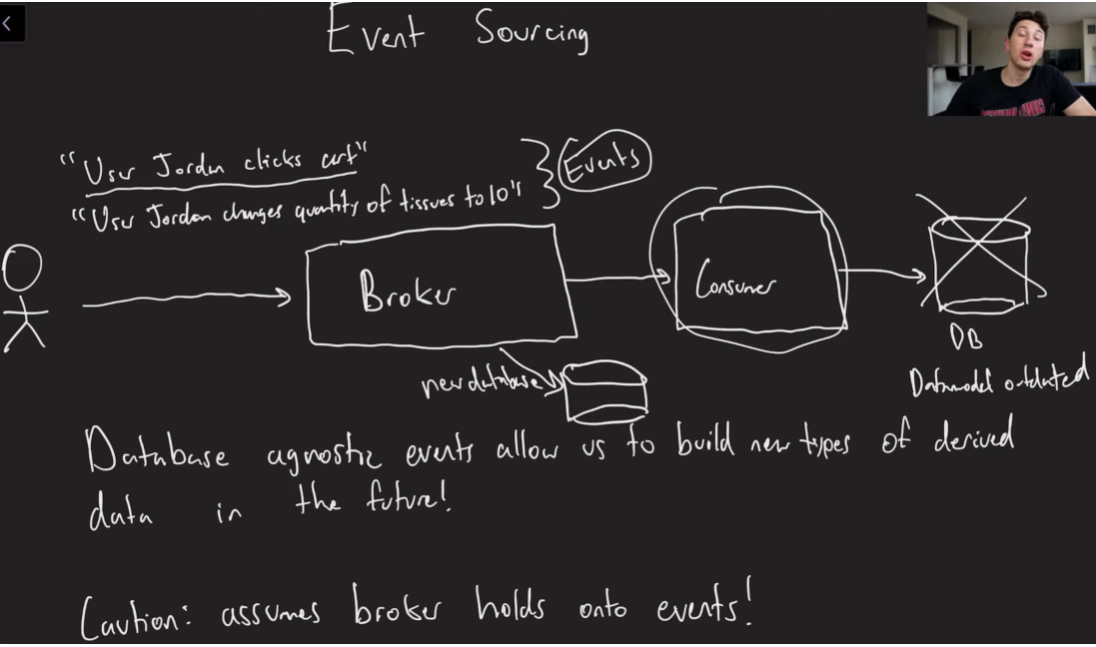 Event Sourcing
"User Jordan clicks cart"
"User Jordan changes quantity of tissues to 10"
Events
Broker
Consumer
DB
Datamodel outdated
new database
Database agnostic events allow us to build new types of derived
data in the future!
Caution: assumes broker holds onto events!